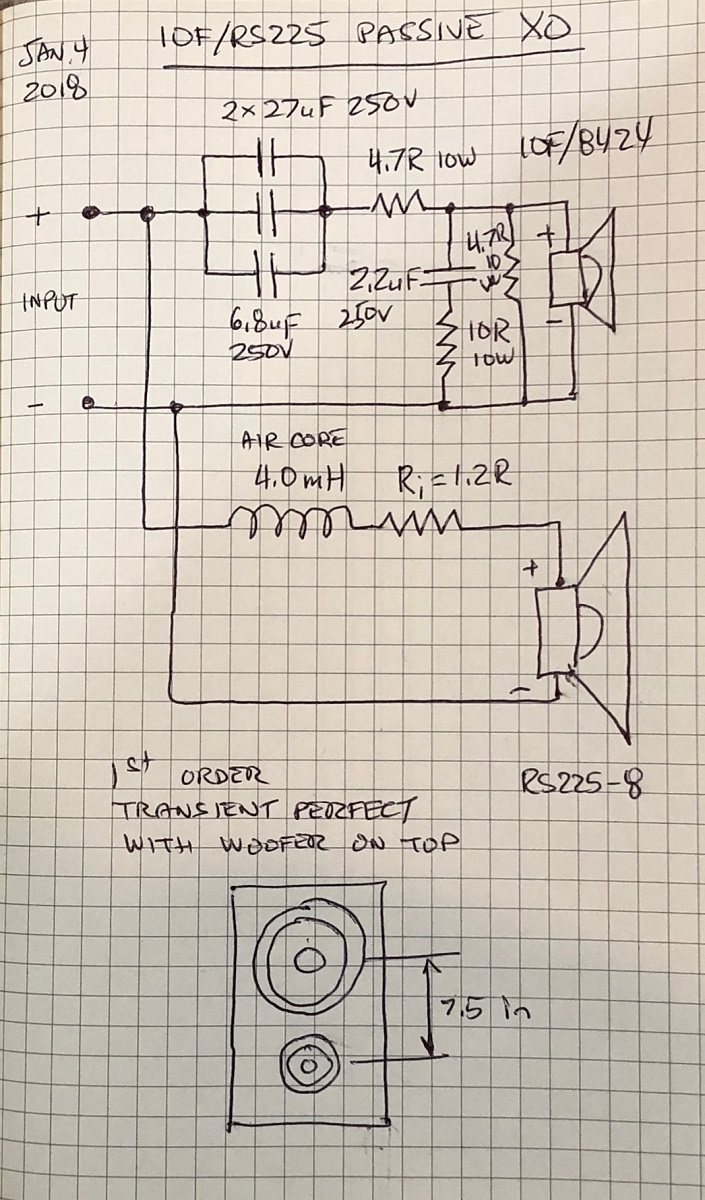 JAN. 4
2018
10F/RS225 PASSIVE XO
2x27uF 250V
4.7R 10W
10F/8424
+
INPUT
-
6.8uF
250V
2.2uF
250V
4.7R
10
W
10R
10W
+
-
AIR CORE
4.0mH
Ri=1.2R
+
-
RS225-8
1st ORDER
TRANSIENT PERFECT
WITH WOOFER ON TOP
7.5 in